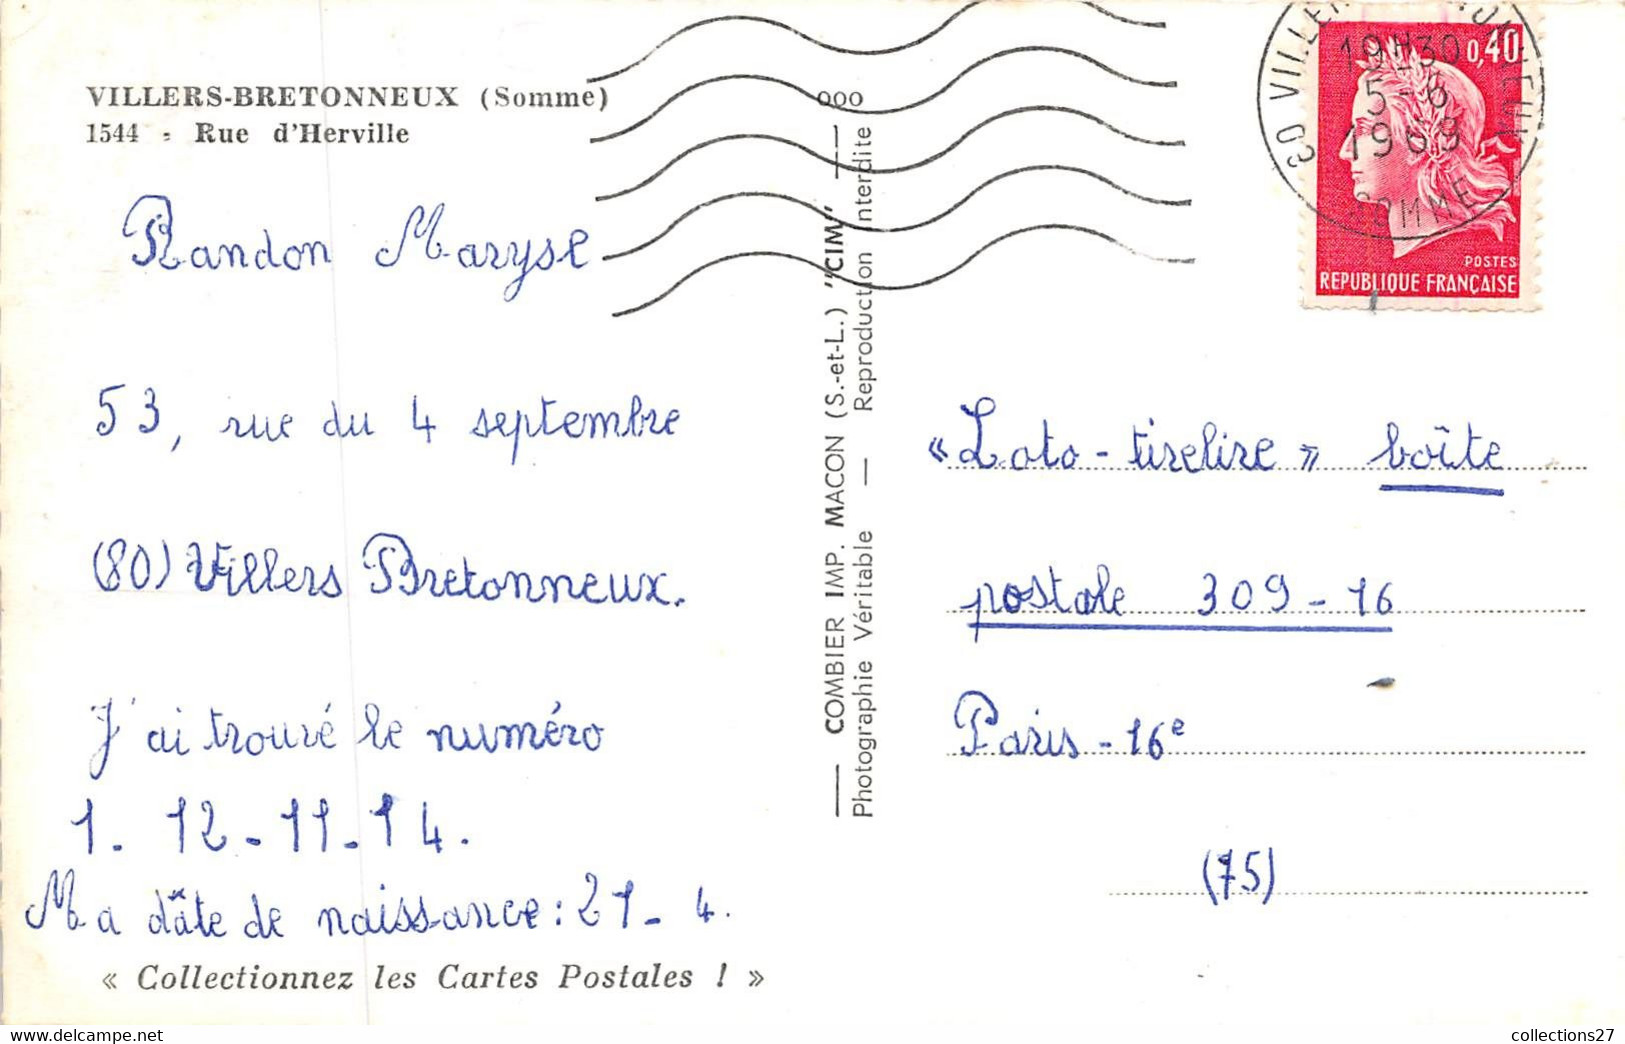 VILLERS-BRETONNEUX (Somme)
1544 - Rue d'Herville
Randon Maryse
53, rue du 4 septembre
(80) Villers Bretonneux.
J'ai trouvé le numéro
1. 12 - 11. 14.
Ma dâte de naissance : 21 - 4.
« Collectionnez les Cartes Postales ! »
ooo
COMBIER IMP. MACON (S.-et-L.) "CIM"
Photographie Véritable — Reproduction Interdite
19H30
5-6
1969
SOMME
0,40
POSTES
REPUBLIQUE FRANÇAISE
« Loto - tirelire » boîte
postale 309 - 16
Paris - 16e
(75)
collections27